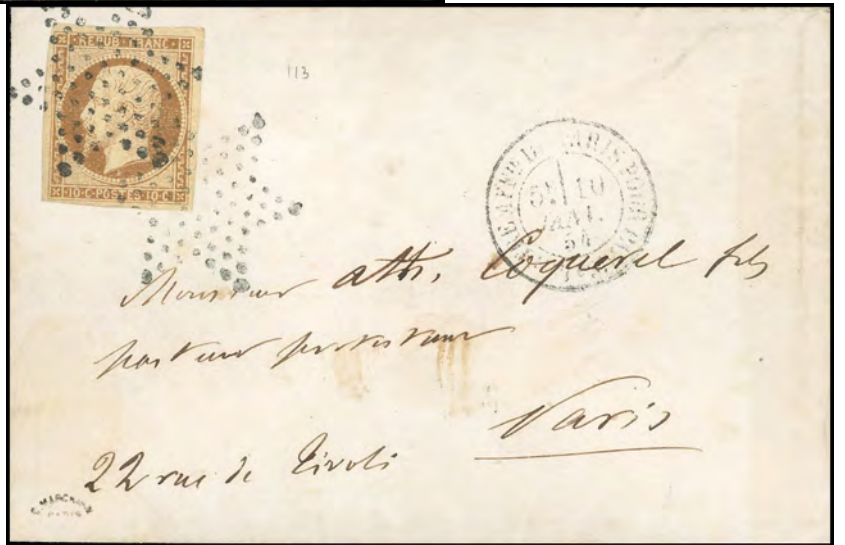 REPUB · FRANC ·
10 · C · POSTES · 10 · C
113
10
54
Monsieur ath. Coquerel fils
pasteur protestant
Paris
22 rue de Rivoli
MARCHAND
PARIS